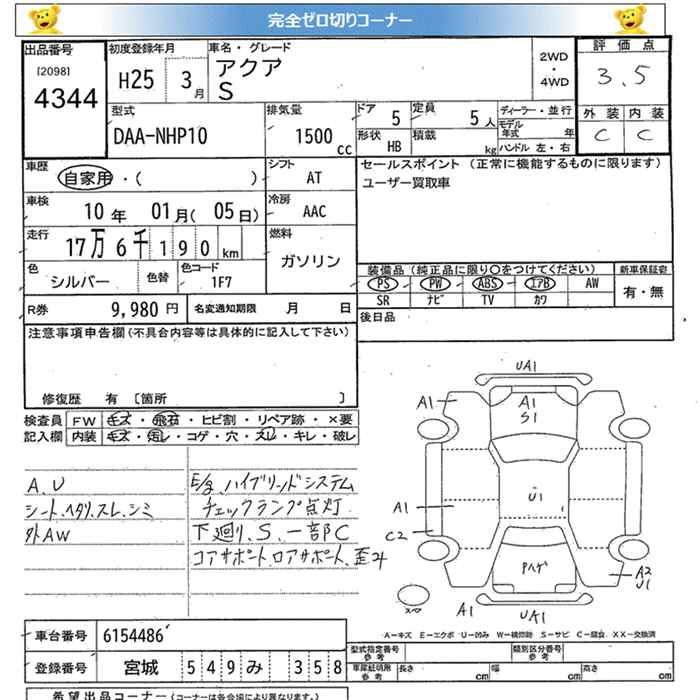 完全ゼロ切りコーナー
出品番号
[2098]
4344
初度登録年月
H25 3月
車名・グレード
アクア
S
2WD
・
4WD
評価点
3.5
外装 内装
C C
型式
DAA-NHP10
排気量
1500 cc
ドア 5
定員 5人
形状 HB
積載 kg
ディーラー・並行
モデル年式 年
ハンドル 左・右
車歴
自家用・( )
シフト
AT
セールスポイント (正常に機能するものに限ります)
ユーザー買取車
車検
10年 01月(05日)
冷房
AAC
走行
17万6千190km
燃料
ガソリン
色
シルバー
色替
色コード
1F7
装備品(純正品に限り○をつけてください)
PS PW ABS エアB AW
SR ナビ TV カワ
新車保証書
有・無
R券 9,980円
名変通知期限 月 日
後日品
注意事項申告欄(不具合内容等は具体的に記入して下さい)
修復歴 有 [箇所 ]
検査員記入欄
FW キズ・飛石・ヒビ割・リペア跡・×要
内装 キズ・汚レ・コゲ・穴・スレ・キレ・破レ
A.U
シートヘタリ.スレ.シミ
外AW
E/g.ハイブリッドシステム
チェックランプ点灯
下廻り.S.一部C
コアサポート.ロアサポート.歪み
UA1
A1
A1
S1
U1
A1
C2
Pハゲ
A2
U1
スペア
A1
UA1
A−キズ E−エクボ U−凹み W−補修跡 S−サビ C−腐食 XX−交換済
車台番号 6154486
登録番号 宮城 549み 358
型式指定番号
参考
類別区分番号
参考
車庫証明用
参考
長さ cm 幅 cm 高さ cm
希望出品コーナー(コーナーは各会場により異なります。)